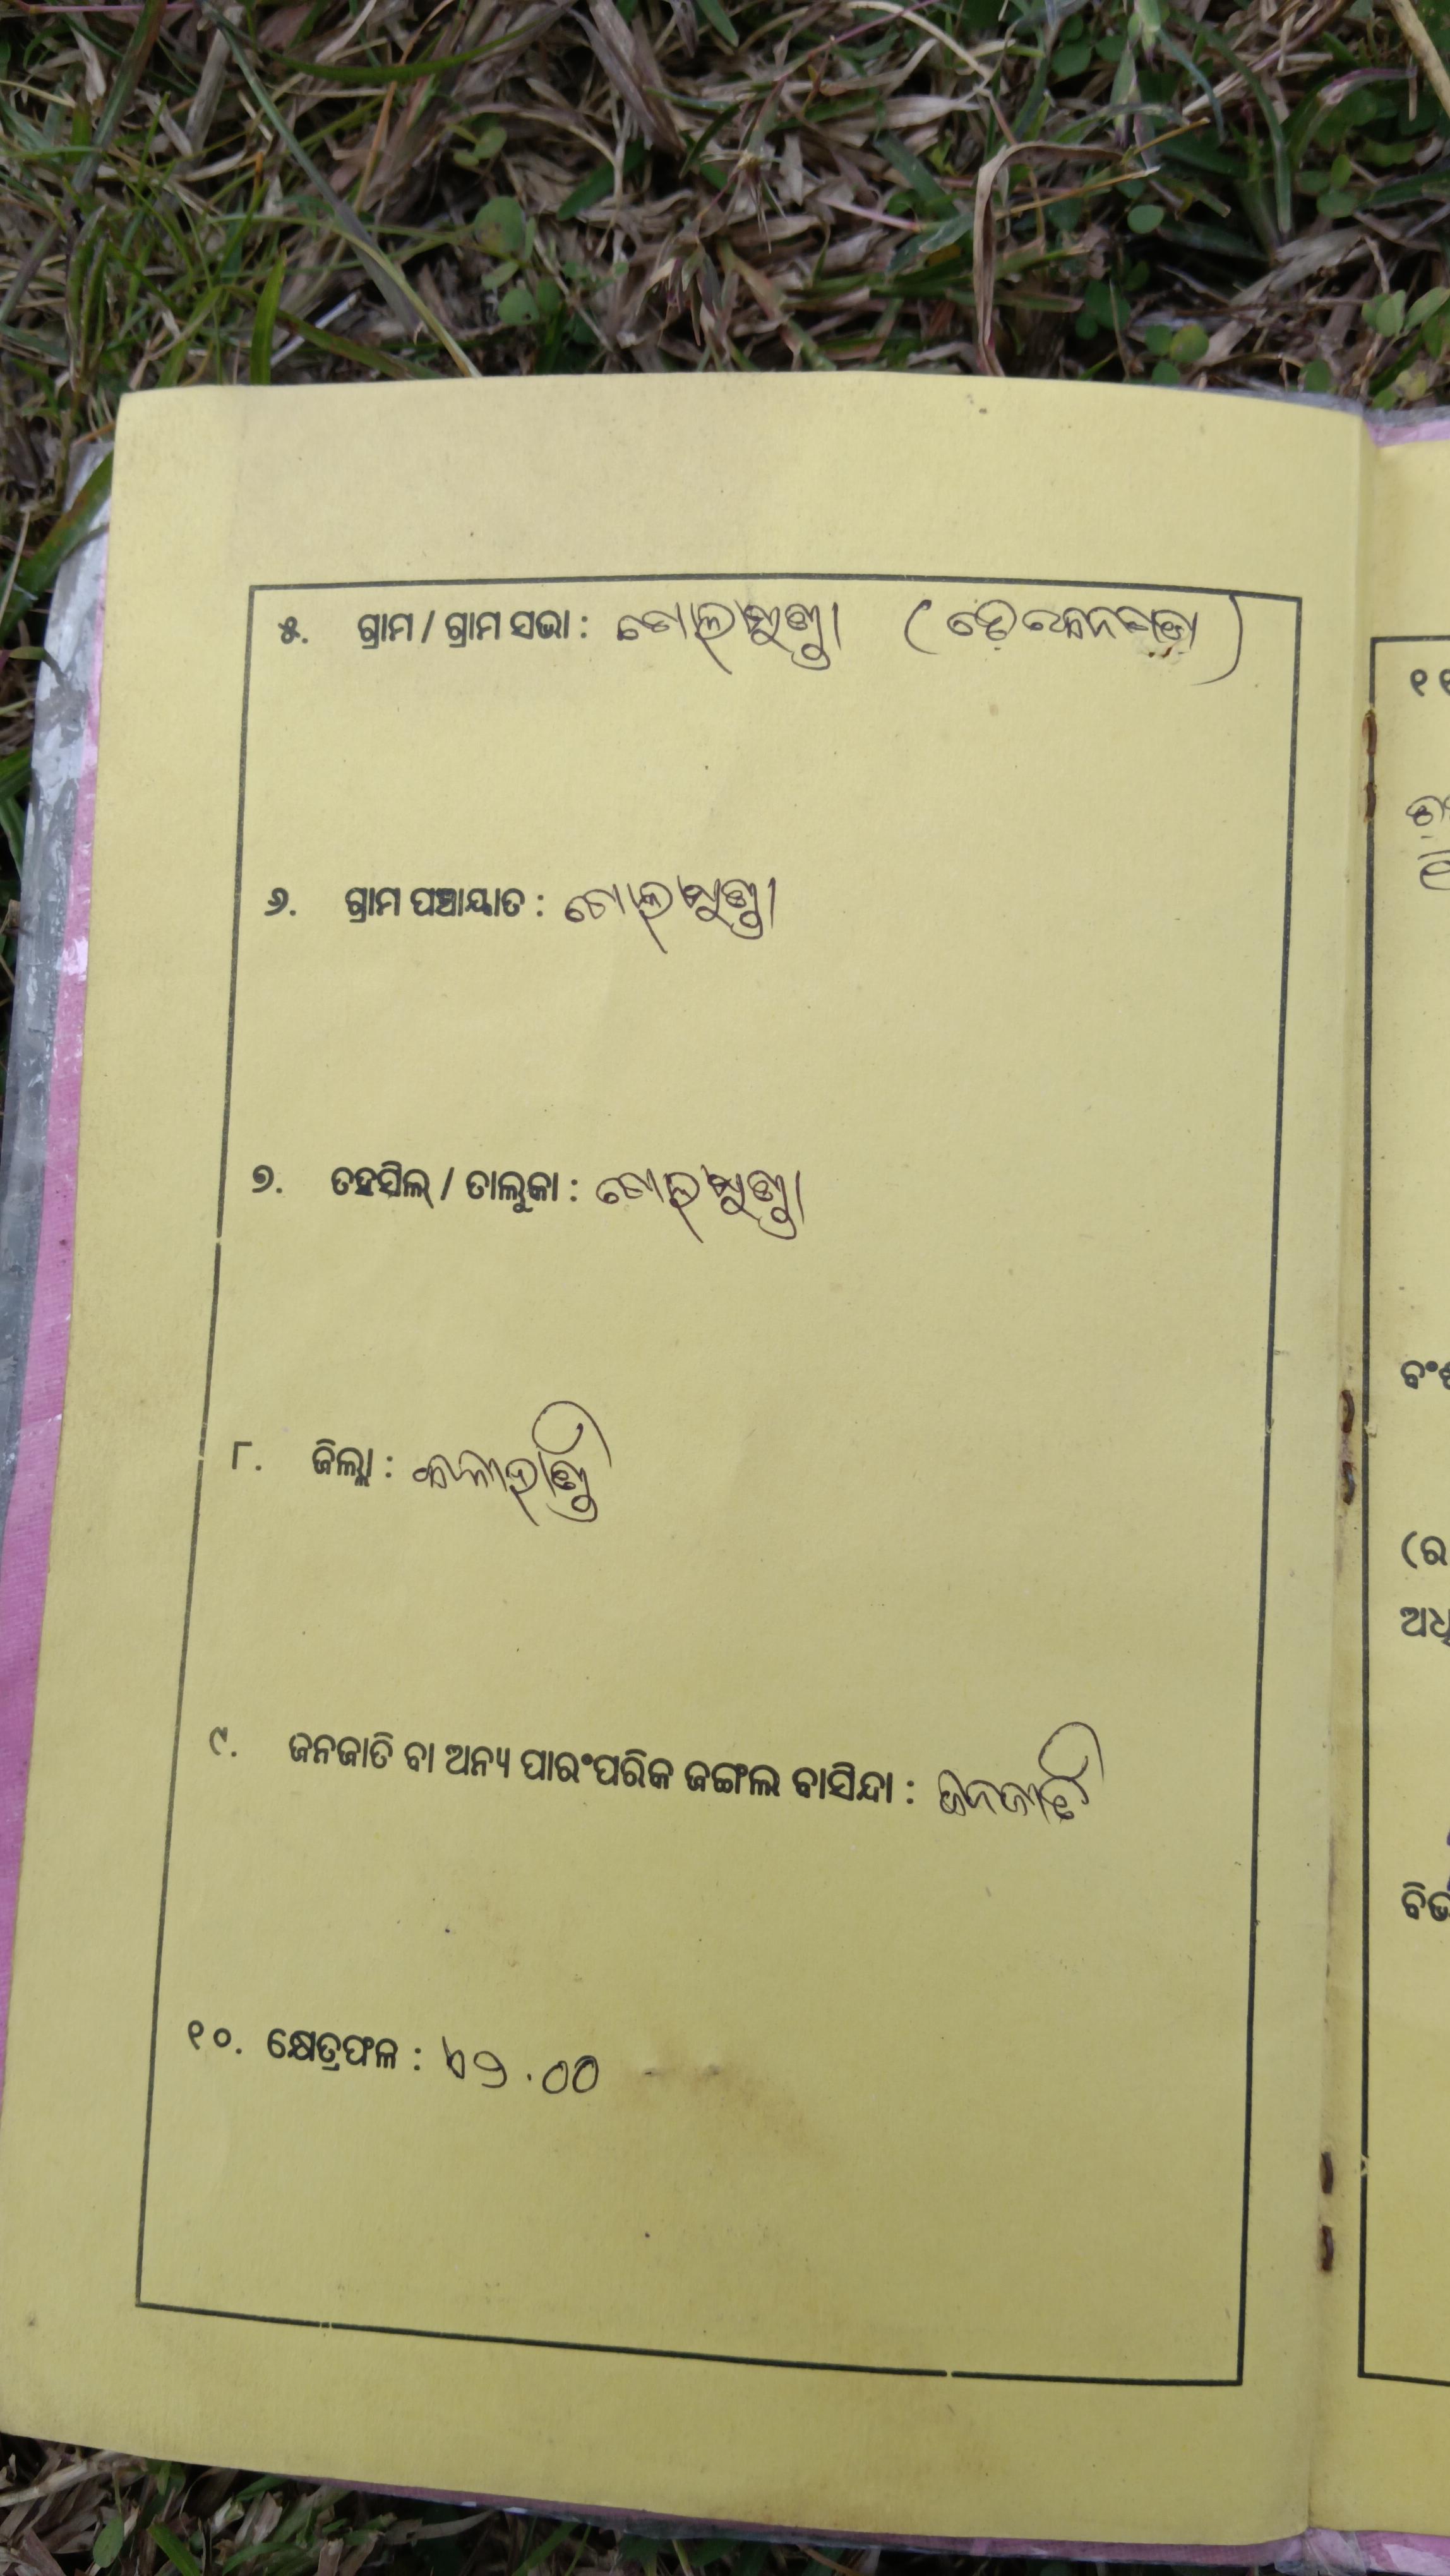 ୫. ଗ୍ରାମ / ଗ୍ରାମ ସଭା : ଗୋଲାମୁଣ୍ଡା
୬. ଗ୍ରାମ ପଞ୍ଚାୟାତ : ଗୋଲାମୁଣ୍ଡା
୭. ତହସିଲ୍ / ତାଲୁକା : ଗୋଲାମୁଣ୍ଡା
୮. ଜିଲ୍ଲା : କଳାହାଣ୍ଡି
୯. ଜନଜାତି ବା ଅନ୍ୟ ପାରଂପରିକ ଜଙ୍ଗଲ ବାସିନ୍ଦା : ଜନଜାତି
୧୦. କ୍ଷେତ୍ରଫଳ :
୧୧
ବଂଶ
(ର
ଅଧି
ବିଭ